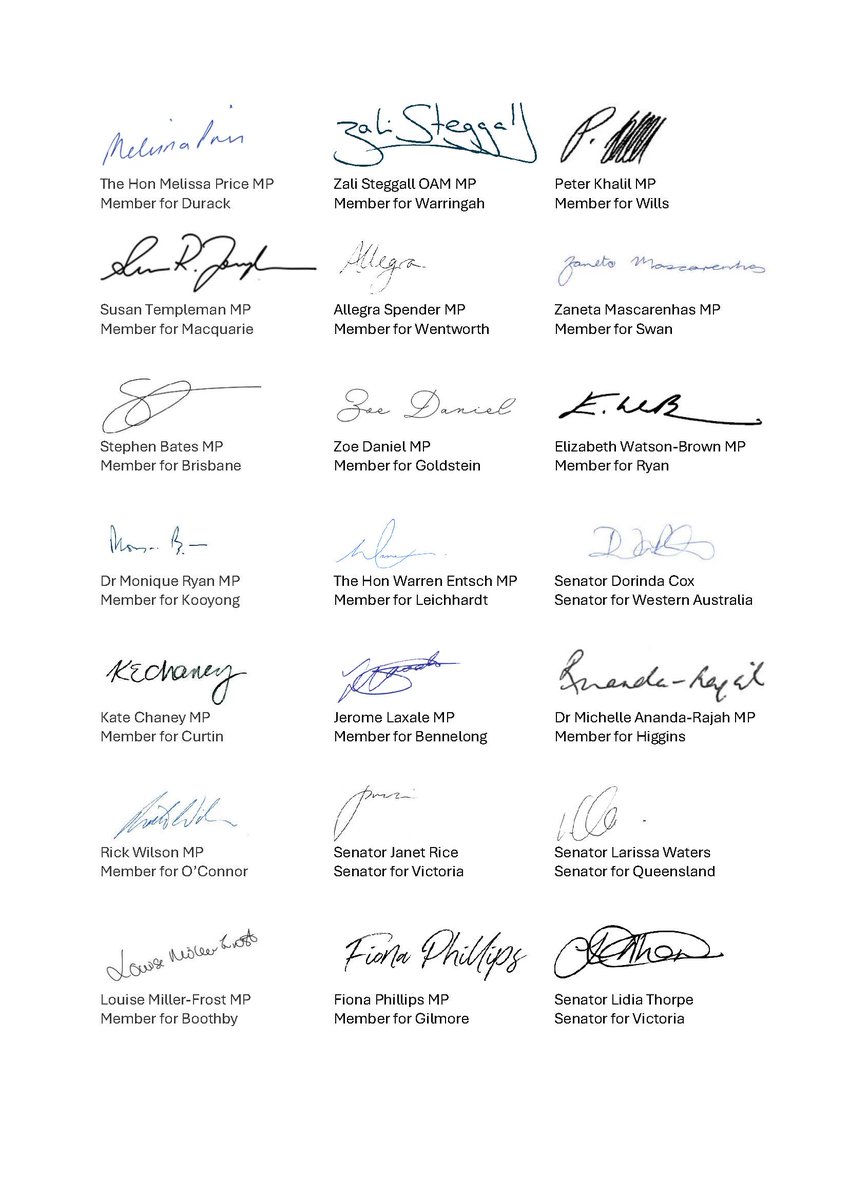 Zali Steggall
The Hon Melissa Price MP
Member for Durack
Zali Steggall OAM MP
Member for Warringah
Peter Khalil MP
Member for Wills
Allegra
Zaneta Mascarenhas
Susan Templeman MP
Member for Macquarie
Allegra Spender MP
Member for Wentworth
Zaneta Mascarenhas MP
Member for Swan
Zoe Daniel
Stephen Bates MP
Member for Brisbane
Zoe Daniel MP
Member for Goldstein
Elizabeth Watson-Brown MP
Member for Ryan
Dr Monique Ryan MP
Member for Kooyong
The Hon Warren Entsch MP
Member for Leichhardt
Senator Dorinda Cox
Senator for Western Australia
KEChaney
Kate Chaney MP
Member for Curtin
Jerome Laxale MP
Member for Bennelong
Dr Michelle Ananda-Rajah MP
Member for Higgins
Rick Wilson MP
Member for O’Connor
Senator Janet Rice
Senator for Victoria
Senator Larissa Waters
Senator for Queensland
Louise Miller Frost
Fiona Phillips
Louise Miller-Frost MP
Member for Boothby
Fiona Phillips MP
Member for Gilmore
Senator Lidia Thorpe
Senator for Victoria